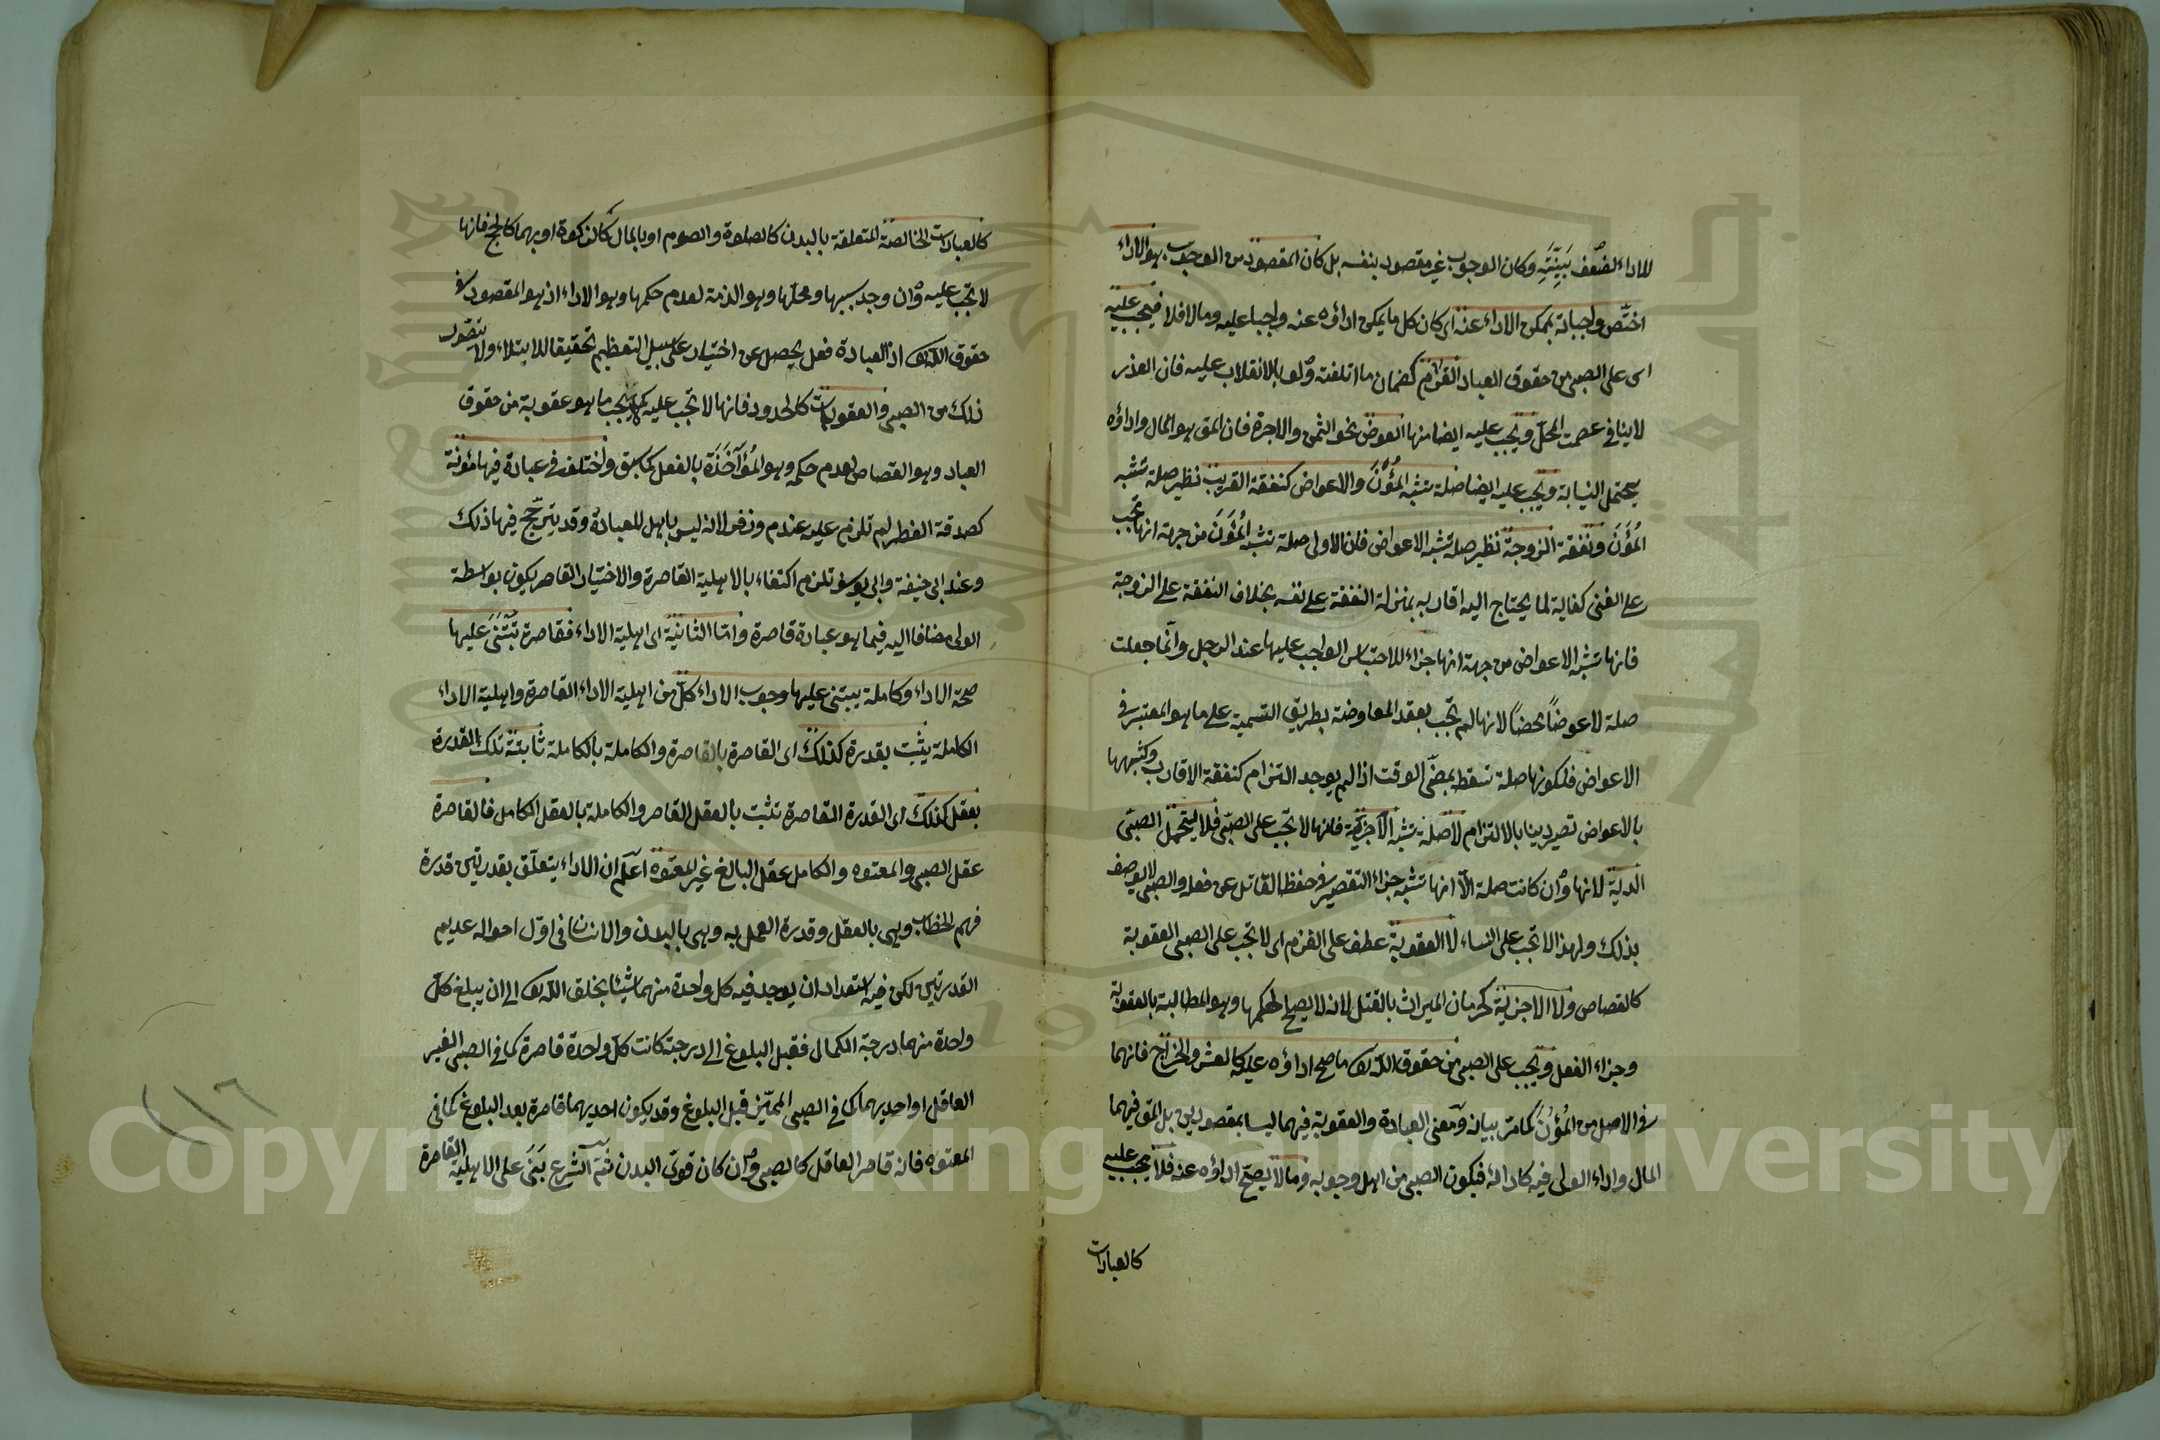 للاداء لضعف بينته وكان الوجوب غير مقصود بنفسه بل كان المقصود من الوجوب هو الاداء
اختص واجباته بممكن الاداء عنه اى كان كل ما يمكن اداؤه عنه واجبا عليه وما لا فلا فيجب عليه
اى على الصبى من حقوق العباد الغرم كضمان ما اتلفته ولو بالانقلاب عليه فان العذر
لا ينافى عصمت المحل ويجب عليه ايضا منها العوض نحو الثمن والاجرة فان المق هو المال واداؤه
يحتمل النيابة ويجب عليه ايضا صلة تشبه المؤن والاعواض كنفقة القريب نظير صلة تشبه
المؤن ونفقة الزوجة نظير صلة تشبه الاعواض فان الاولى صلة تشبه المؤن من جهة انها تجب
على الغنى كفاية لما يحتاج اليه اقاربه بمنزلة النفقة على نفسه بخلاف النفقة على الزوجة
فانها تشبه الاعواض من جهة انها جزاء للاحتباس الواجب عليها عند الرجل وانما جعلت
صلة لا عوضا محضا لانها لم تجب بعقد المعاوضة بطريق التسمية على ما هو المعتبر فى
الاعواض فلكونها صلة تسقط بمضى الوقت اذا لم يوجد التزام كنفقة الاقارب وكشبهها
بالاعواض تصير دينا بالالتزام لا صلة تشبه الاجزية فانها لا تجب على الصبى فلا يتحمل الصبى
الدية لانها وان كانت صلة الا انها تشبه جزاء التقصير فى حفظ القاتل عن فعله والصبى لا يوصف
بذلك ولهذا لا تجب على النساء لا العقوبة عطف على الغرم اى لا تجب على الصبى العقوبة
كالقصاص ولا الاجزية كحرمان الميراث بالقتل لانه لا يصلح لحكمها وهو المطالبة بالعقوبة
وجزاء الفعل ويجب على الصبى من حقوق الله تعالى ما صح اداؤه عليه كالعشر والخراج فانهما
فى الاصل من المؤن كما مر بيانه ومعنى العبادة والعقوبة فيهما ليسا بمقصودين بل المق فيهما
المال واداء الولى فيه كادائه فيكون الصبى من اهل وجوبه وما لا يصح اداؤه عنه فلا يجب عليه
كالعبادات
كالعبادات الخالصة المتعلقة بالبدن كالصلوة والصوم او بالمال كالزكوة او بهما كالحج فانها
لا تجب عليه وان وجد سببها ومحلها وهو الذمة لعدم حكمها وهو الاداء اذ هو المقصود فى
حقوق الله تعالى اذ العبادة فعل يحصل عن اختيار على سبيل التعظيم تحقيقا للابتلاء ولا يتصور
ذلك من الصبى والعقوبات كالحدود فانها لا تجب عليه كما لا يجب ما هو عقوبة من حقوق
العباد وهو القصاص لعدم حكمه وهو المؤاخذة بالفعل كما سبق واختلف فى عبادة فيها مؤنة
كصدقة الفطر لم تلزم عليه عند م وزفر لانه ليس باهل للعبادة وقد يترجح فيها ذلك
وعند ابى حنيفة وابى يوسف تلزم اكتفاء بالاهلية القاصرة والاختيار القاصر يكون بواسطة
الولى مضافا اليه فيما هو عبادة قاصرة واما الثانية اى اهلية الاداء فقاصرة تبتنى عليها
صحة الاداء وكاملة يبتنى عليها وجوب الاداء كل من اهلية الاداء القاصرة واهلية الاداء
الكاملة يثبت بقدرة كذلك اى القاصرة بالقاصرة والكاملة بالكاملة ثابتة تلك القدرة
بعقل كذلك اى القدرة القاصرة تثبت بالعقل القاصر والكاملة بالعقل الكامل فالقاصرة
عقل الصبى والمعتوه والكامل عقل البالغ غير المعتوه اعلم ان الاداء يتعلق بقدرتين قدرة
فهم الخطاب وهى بالعقل وقدرة العمل به وهى بالبدن والانسان فى اول احواله عديم
القدرتين لكن فيه استعداد ان يوجد فيه كل واحدة منهما شيئا بخلق الله تعالى الى ان يبلغ كل
واحدة منهما درجة الكمال فقبل البلوغ الى درجته كانت كل واحدة قاصرة كما فى الصبى الغير
العاقل او احديهما كما فى الصبى المميز قبل البلوغ وقد يكون احديهما قاصرة بعد البلوغ كما فى
المعتوه فانه قاصر العاقل كالصبى وان كان قوى البدن ثم الشرع بنى على الاهلية القاصرة
١١٦
Copyright © King Saud University